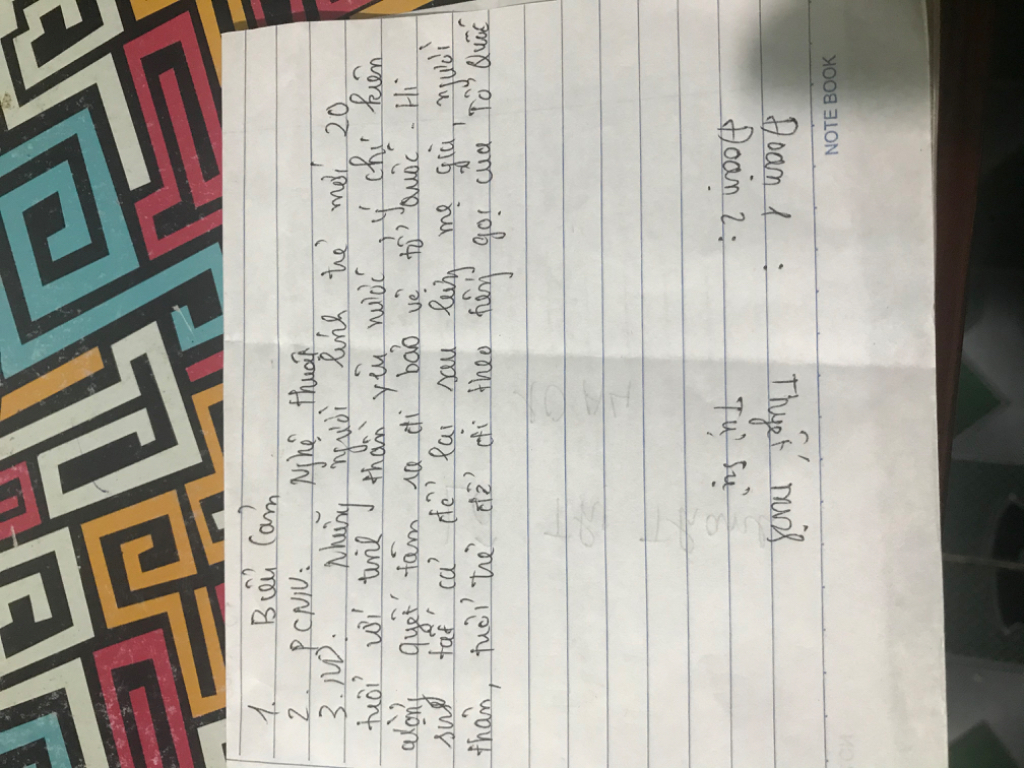 1. Biểu Cảm
2. PCNN: Nghệ thuật
3. ND. Những người lính trẻ mới 20
tuổi với tinh thần yêu nước, ý chí kiên
cường quyết tâm ra đi bảo vệ tổ quốc. Hi
sinh tất cả để lại sau lưng mẹ già, người
thân, tuổi trẻ để đi theo tiếng gọi của Tổ Quốc
Đoạn 1 : Thuyết minh
Đoạn 2: Tự sự
NOTEBOOK